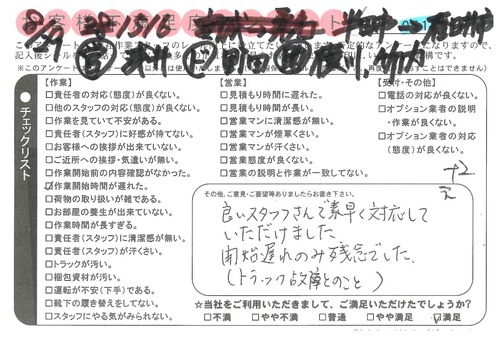 8/29
チェックリスト
【作業】
□責任者の対応(態度)が良くない。
□他のスタッフの対応(態度)が良くない。
□作業を見ていて不安がある。
□責任者(スタッフ)に好感が持てない。
□お客様への挨拶が出来ていない。
□ご近所への挨拶・気遣いが無い。
□作業開始前の内容確認がなかった。
☑作業開始時間が遅れた。
□荷物の取り扱いが雑である。
□お部屋の養生が出来ていない。
□作業時間が長すぎる。
□責任者(スタッフ)に清潔感が無い。
□責任者(スタッフ)が汗くさい。
□トラックが汚い。
□梱包資材が汚い。
□運転が不安(下手)である。
□靴下の履き替えをしてない。
□スタッフにやる気がみられない。
【営業】
□見積もり時間に遅れた。
□見積もり時間が長い。
□営業マンに清潔感が無い。
□営業マンが煙草くさい。
□営業マンが汗くさい。
□営業態度が良くない。
□営業の説明と作業が一致してない。
【受付・その他】
□電話の対応が良くない。
□オプション業者の説明
・作業が良くない。
□オプション業者の対応
(態度)が良くない。
その他、ご意見・ご要望等ありましたらお書き下さい。
良いスタッフさんで素早く対応して
いただけました
開始遅れのみ残念でした。
(トラック故障とのこと)
★当社をご利用いただきまして、ご満足いただけたでしょうか?
□不満 □やや不満 □普通 □やや満足 ☑満足